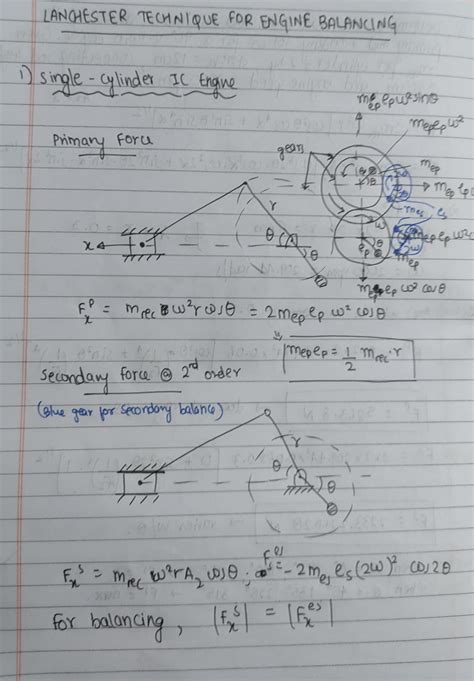 LANCHESTER TECHNIQUE FOR ENGINE BALANCING
1) Single-cylinder IC Engine
Primary Force
gears
m_ep e_p ω² sinθ
m_ep e_p ω²
m_ep
m_ep e_p
m_es e_s
r
θ
θ
x
ω
θ
e_p
2ω
m_ep e_p ω² c
m_ep
m_ep e_p ω² cosθ
F_x^P = m_rec ω² r cosθ = 2 m_ep e_p ω² cosθ
m_ep e_p = 1/2 m_rec · r
Secondary force @ 2nd order
(Blue gear for secondary balance)
r
θ
θ
F_x^s = m_rec ω² r A₂ cosθ ; F_x^es = -2 m_es e_s (2ω)² cos 2θ
For balancing, |F_x^s| = |F_x^es|